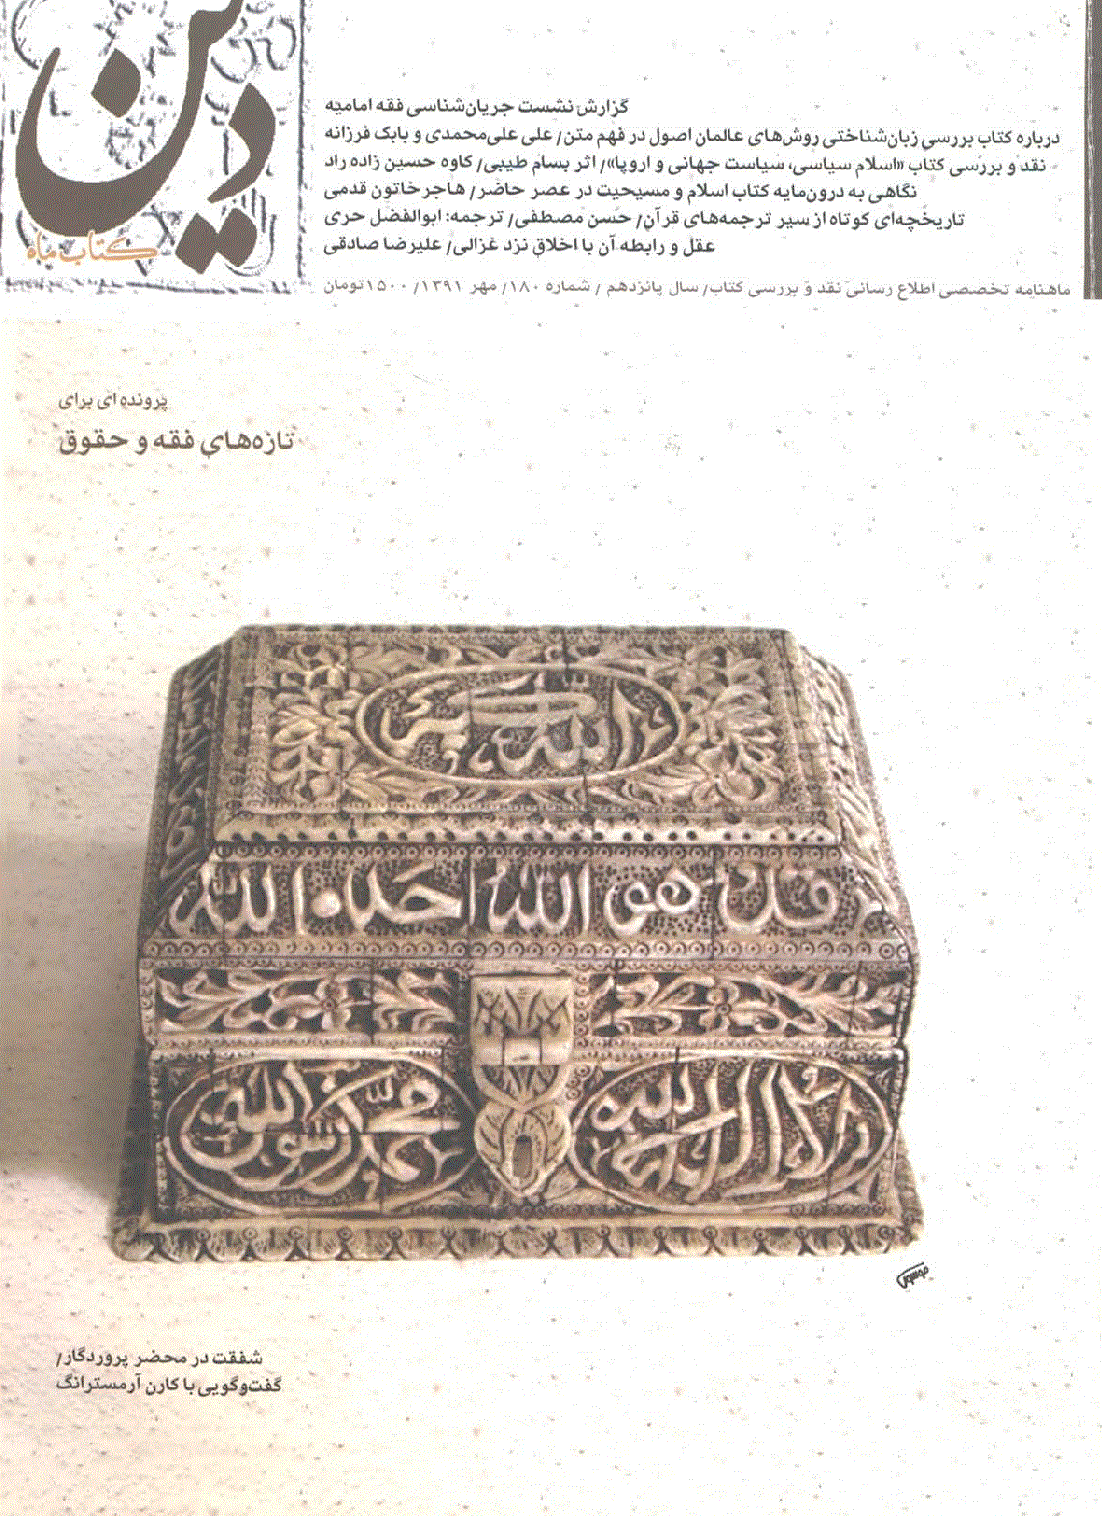 دین
کتاب ماه
گزارش نشست جریان‌شناسی فقه امامیه
درباره کتاب بررسی زبان‌شناختی روش‌های عالمان اصول در فهم متن/ علی علی‌محمدی و بابک فرزانه
نقد و بررسی کتاب «اسلام سیاسی، سیاست جهانی و اروپا»/ اثر بسام طیبی/ کاوه حسین زاده راد
نگاهی به درون‌مایه کتاب اسلام و مسیحیت در عصر حاضر/ هاجر خاتون قدمی
تاریخچه‌ای کوتاه از سیر ترجمه‌های قرآن/ حسن مصطفی/ ترجمه: ابوالفضل حری
عقل و رابطه آن با اخلاق نزد غزالی/ علیرضا صادقی
ماهنامه تخصصی اطلاع رسانی نقد و بررسی کتاب/ سال پانزدهم / شماره ۱۸۰/ مهر ۱۳۹۱/ ۱۵۰۰تومان
پرونده ای برای
تازه‌های فقه و حقوق
قل هو الله احد الله
لا اله الا الله
محمد رسول الله
شفقت در محضر پروردگار/
گفت‌وگویی با کارن آرمسترانگ